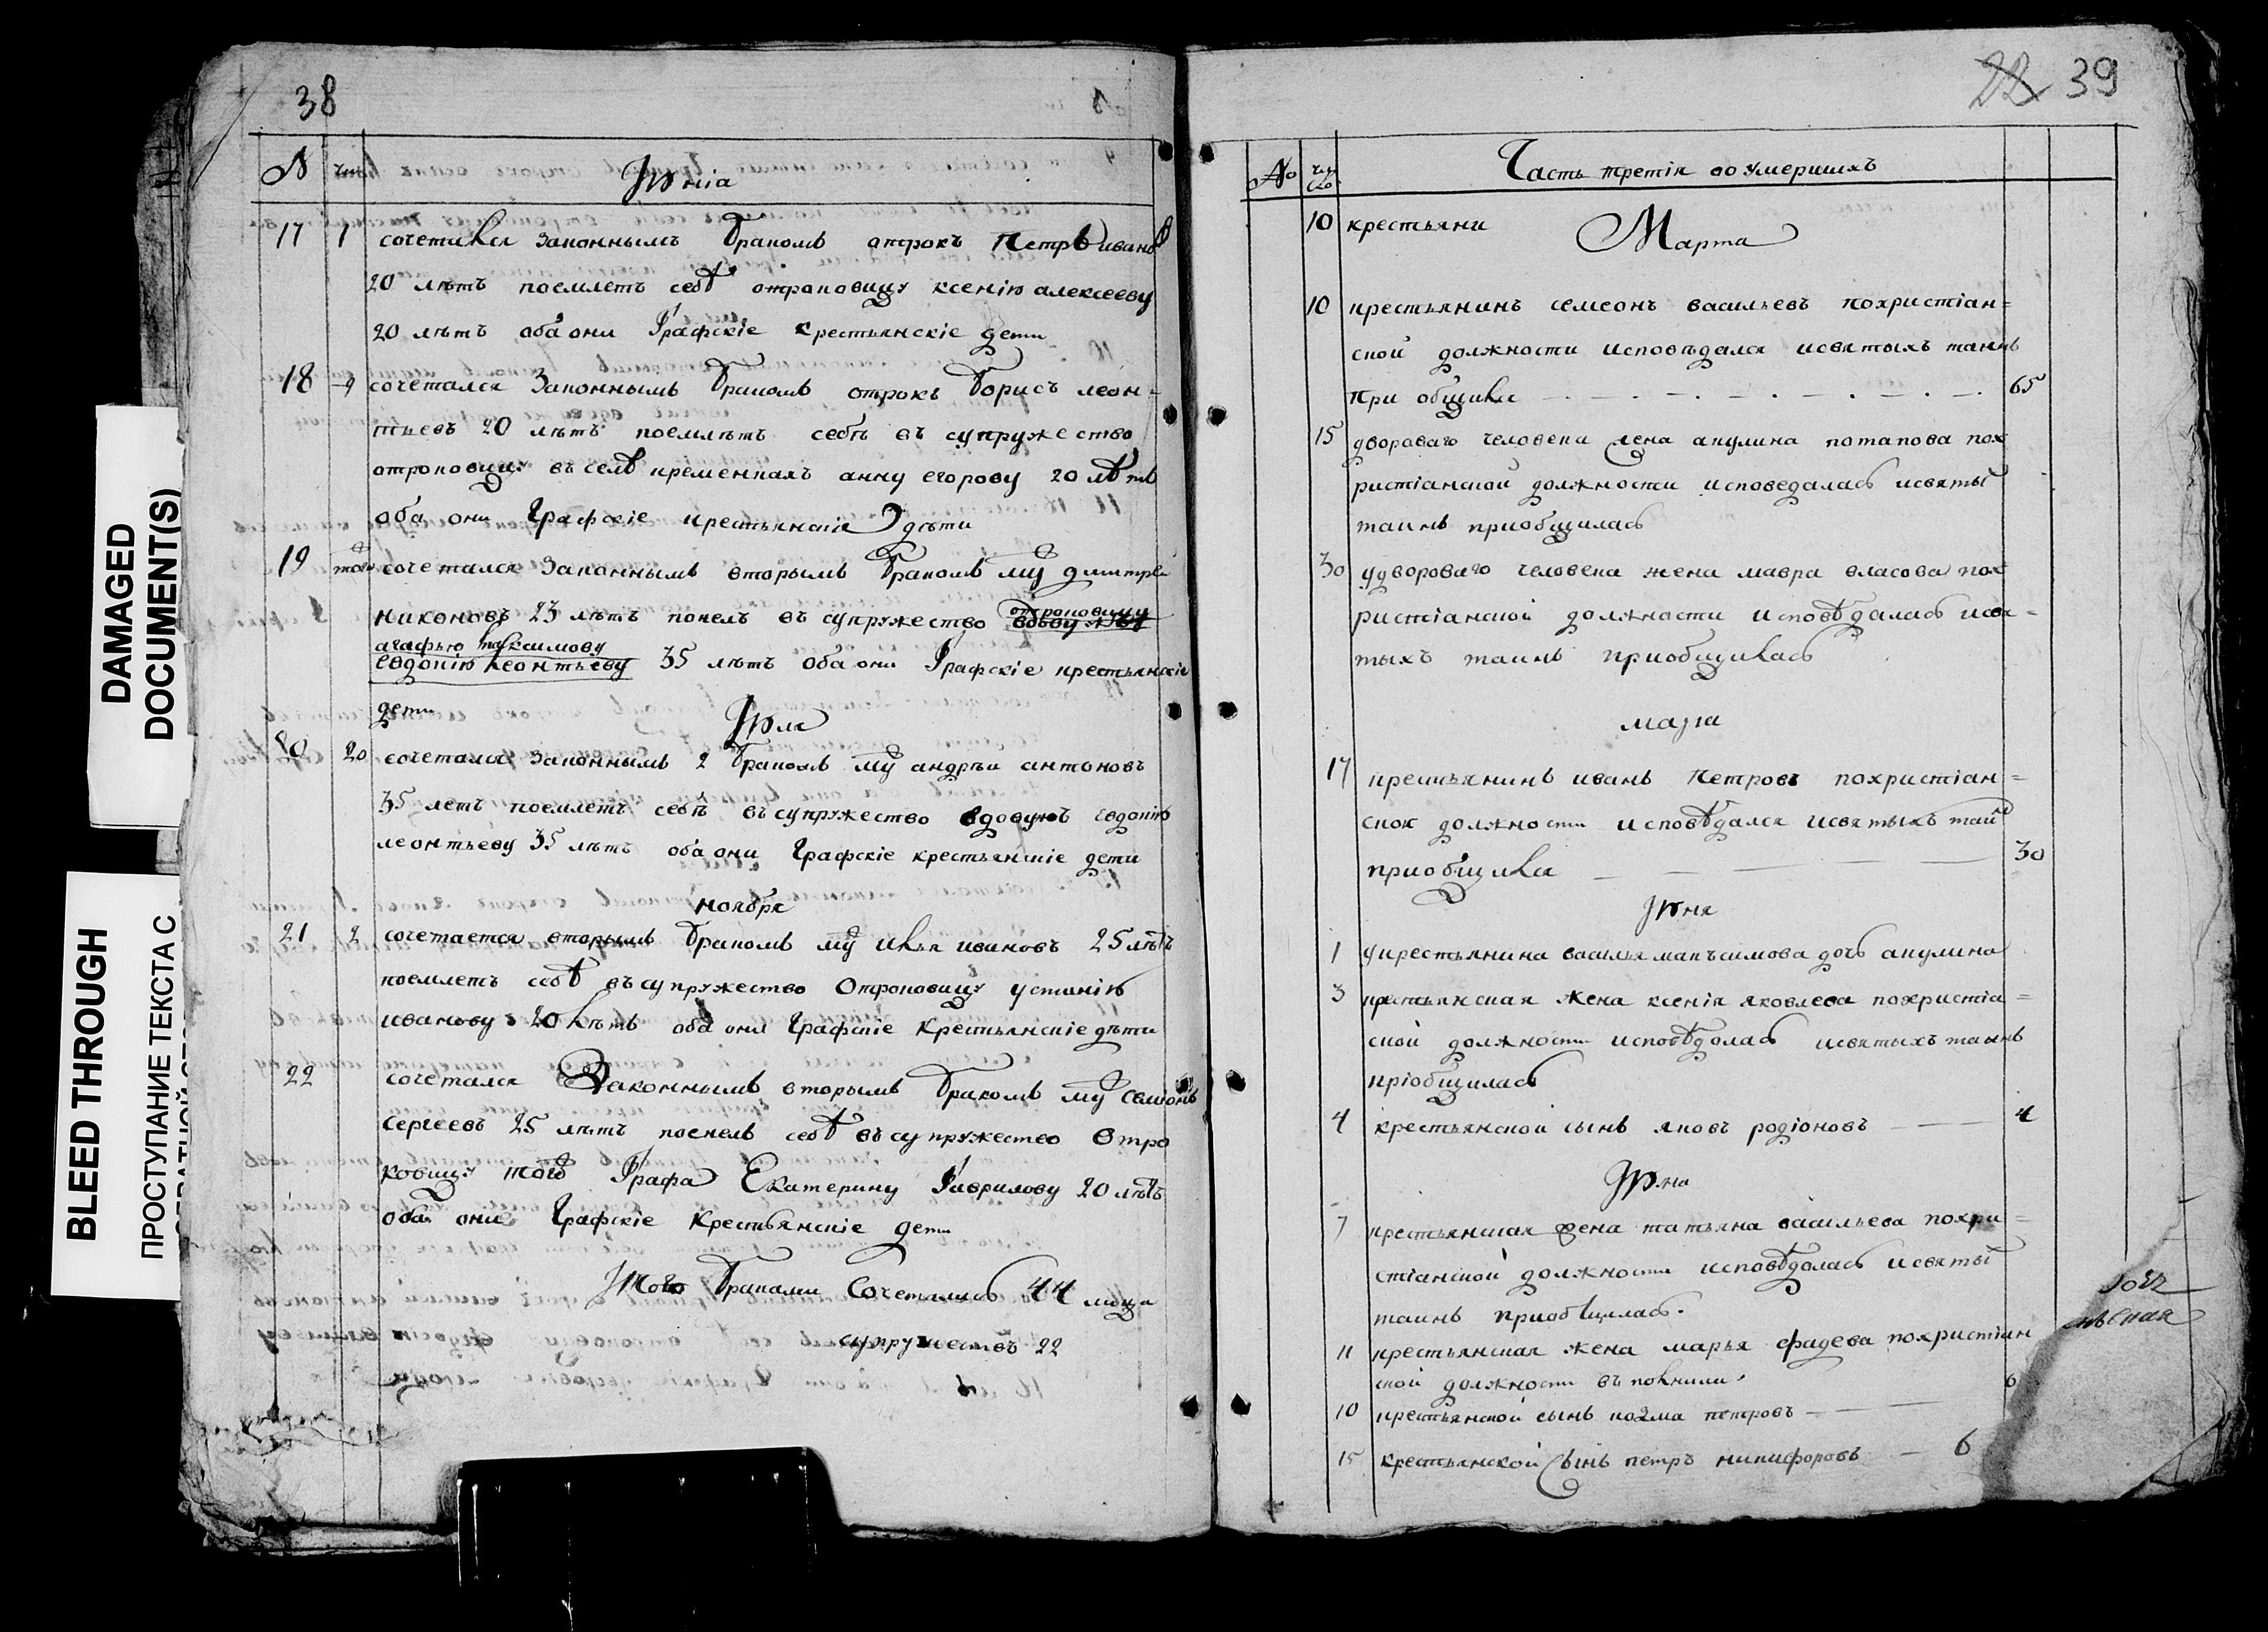 DAMAGED
DOCUMENT(S)
BLEED THROUGH
ПРОСТУПАНИЕ ТЕКСТА С
38
№ чис
Июніа
17 1 сочетался законнымъ бракомъ отрокъ петръ ивановъ
20 лѣтъ поемлетъ себѣ отроковицу ксенію алексееву
20 лѣтъ оба они Графскіе крестьянскіе дети
18 9 сочетался Законнымъ бракомъ отрокъ борисъ леон-
тьевъ 20 лѣтъ поемлѣтъ себѣ въ супружество
отроковицу въ селѣ кременкахъ анну егорову 20 лѣтъ
оба они Графскіе крестьянскіе дѣти
19 сочетался Законнымъ вторымъ бракомъ му дмитре
никоновъ 23 лѣтъ понелъ въ супружество отроковицу
агафью максимову
евдокію леонтьеву 35 лѣтъ оба они Графскіе крестьянскіе
дети
Июля
20 20 сочетался Законнымъ 2 бракомъ му андрѣи антоновъ
35 летъ поемлетъ себѣ въ супружество вдовую евдокію
леонтьеву 35 лѣтъ оба они Графскіе крестьянскіе дети
ноября
21 2 сочетается вторымъ бракомъ му илья ивановъ 25 лѣтъ
поемлетъ себѣ въ супружество Отроковицу устинію
иванову 20 лѣтъ оба они Графскіе крестьянскіе дѣти
22 сочетался Законнымъ вторымъ бракомъ му семионъ
Сергеевъ 25 лѣтъ поемлъ себѣ въ супружество Отро
ковицу того Графа Екатерину Гаврилову 20 лѣтъ
оба они Графскіе крестьянскіе дети
Итого браками Сочетались 44 лица
супружествъ 22
22 39
№ чис
ло
Часть третія оо умершихъ
10 крестьяни
Марта
10 крестьянинъ семеонъ васильевъ похристіан=
ской должности исповѣдался исвятыхъ таинъ
при общился 65
15 двороваго человека жена акулина потапова пох
ристіанской должности исповедалась исвяты
таинъ приобщилась
30 удвороваго человека жена мавра власова пох
ристіанской должности исповѣдалась исвя=
тыхъ таинъ приобщилась
маѵа
17 крестьянинъ иванъ петровъ похристіан=
ской должности исповѣдался исвятыхъ таин
приобщился 30
Июня
1 укрестьянина василья макъсимова дочь акулина
3 крестьянская жена ксенія яковлева похристіа=
ской должности исповѣдолась исвятыхъ таинъ
пріобщилась
4 крестьянской сынъ яковъ родіоновъ 4
Июна
7 крестьянская жена татьяна васильева похри=
стіанской должности исповѣдолась исвяты
таинъ приобщилась.
11 крестьянская жена марья фадева похристіан
ской должности
10 крестьянской сынъ козма петровъ 6
15 крестьянской сынъ петръ никифоровъ 6